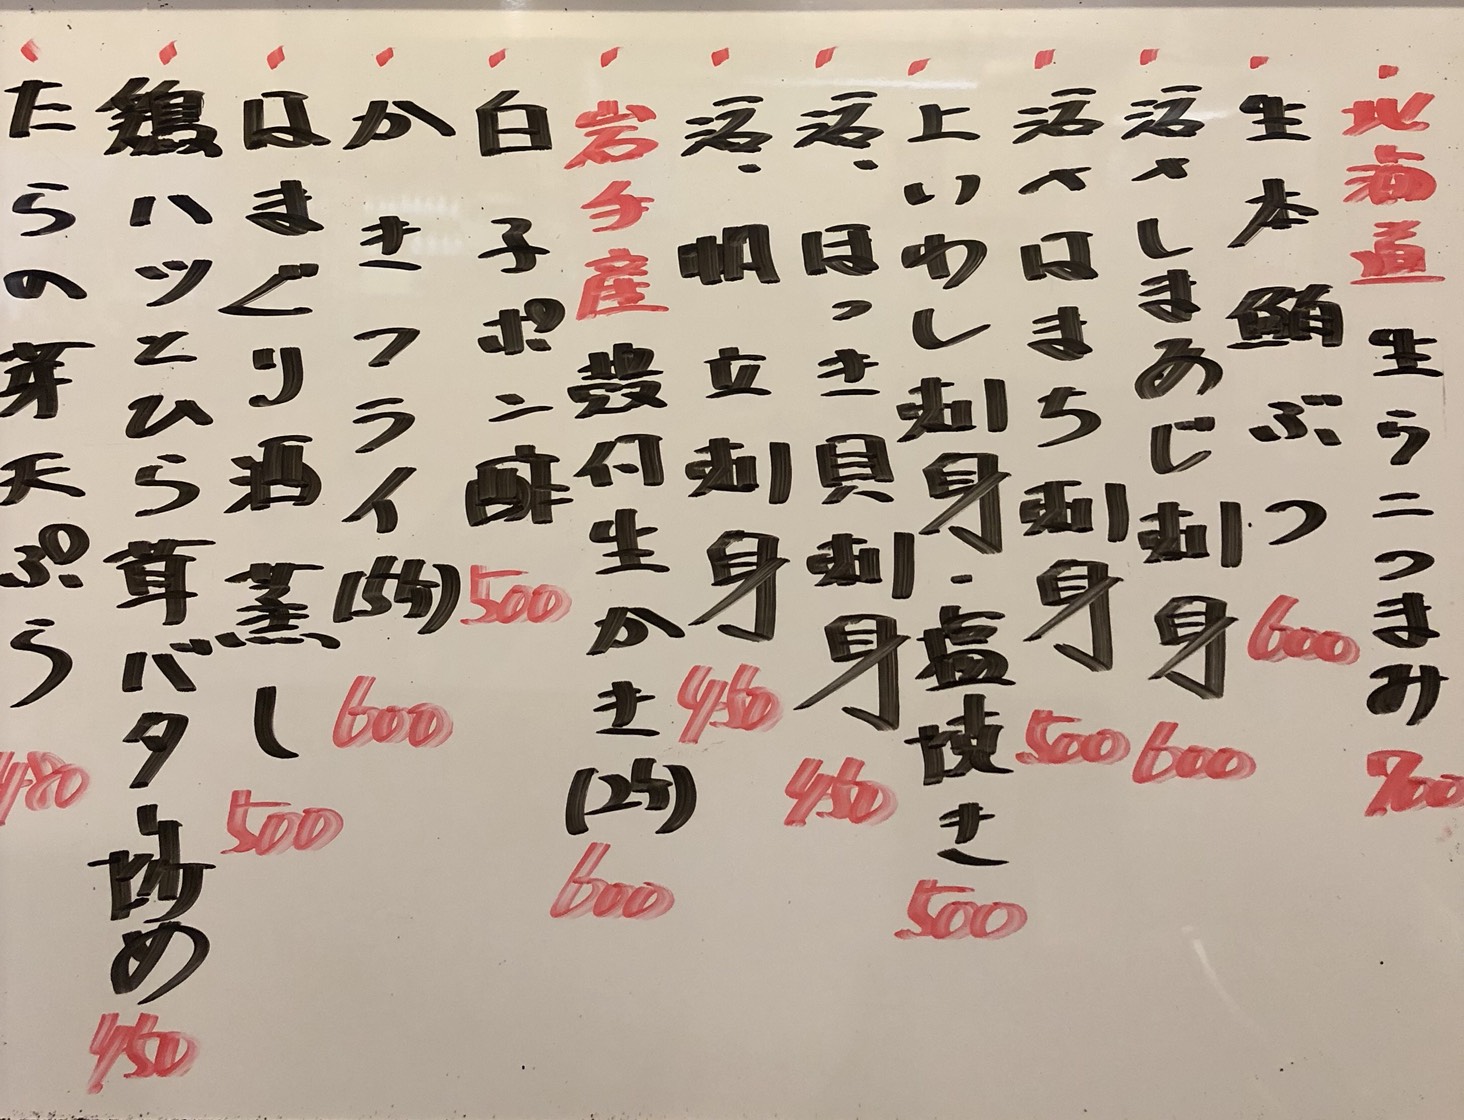 北海道 生ウニつまみ 700
生本鮪ぶつ 600
活〆しまあじ刺身 600
活〆はまち刺身 500
上いわし刺身・塩焼き 500
活、ほっき貝刺身 450
活、帆立刺身 450
岩手産 殻付生かき(2ケ) 600
白子ポン酢 500
かきフライ(5ケ) 600
はまぐり酒蒸し 500
鶏ハツとひら茸バター炒め 450
たらの芽天ぷら 480